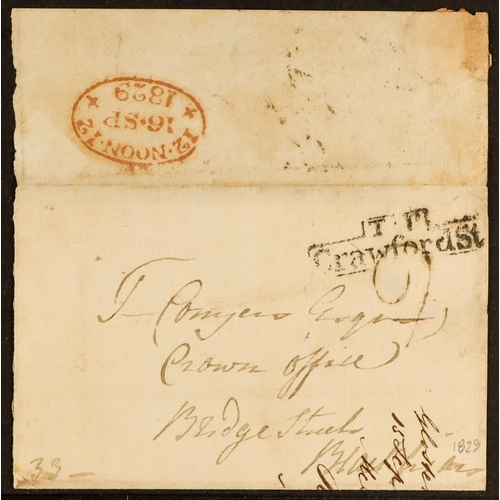 12·NOON·12
16·SP
1829
T.P
Crawford St
T Conyers Esqr
Crown Office
Bridge Street
Blackfriars
1829
33